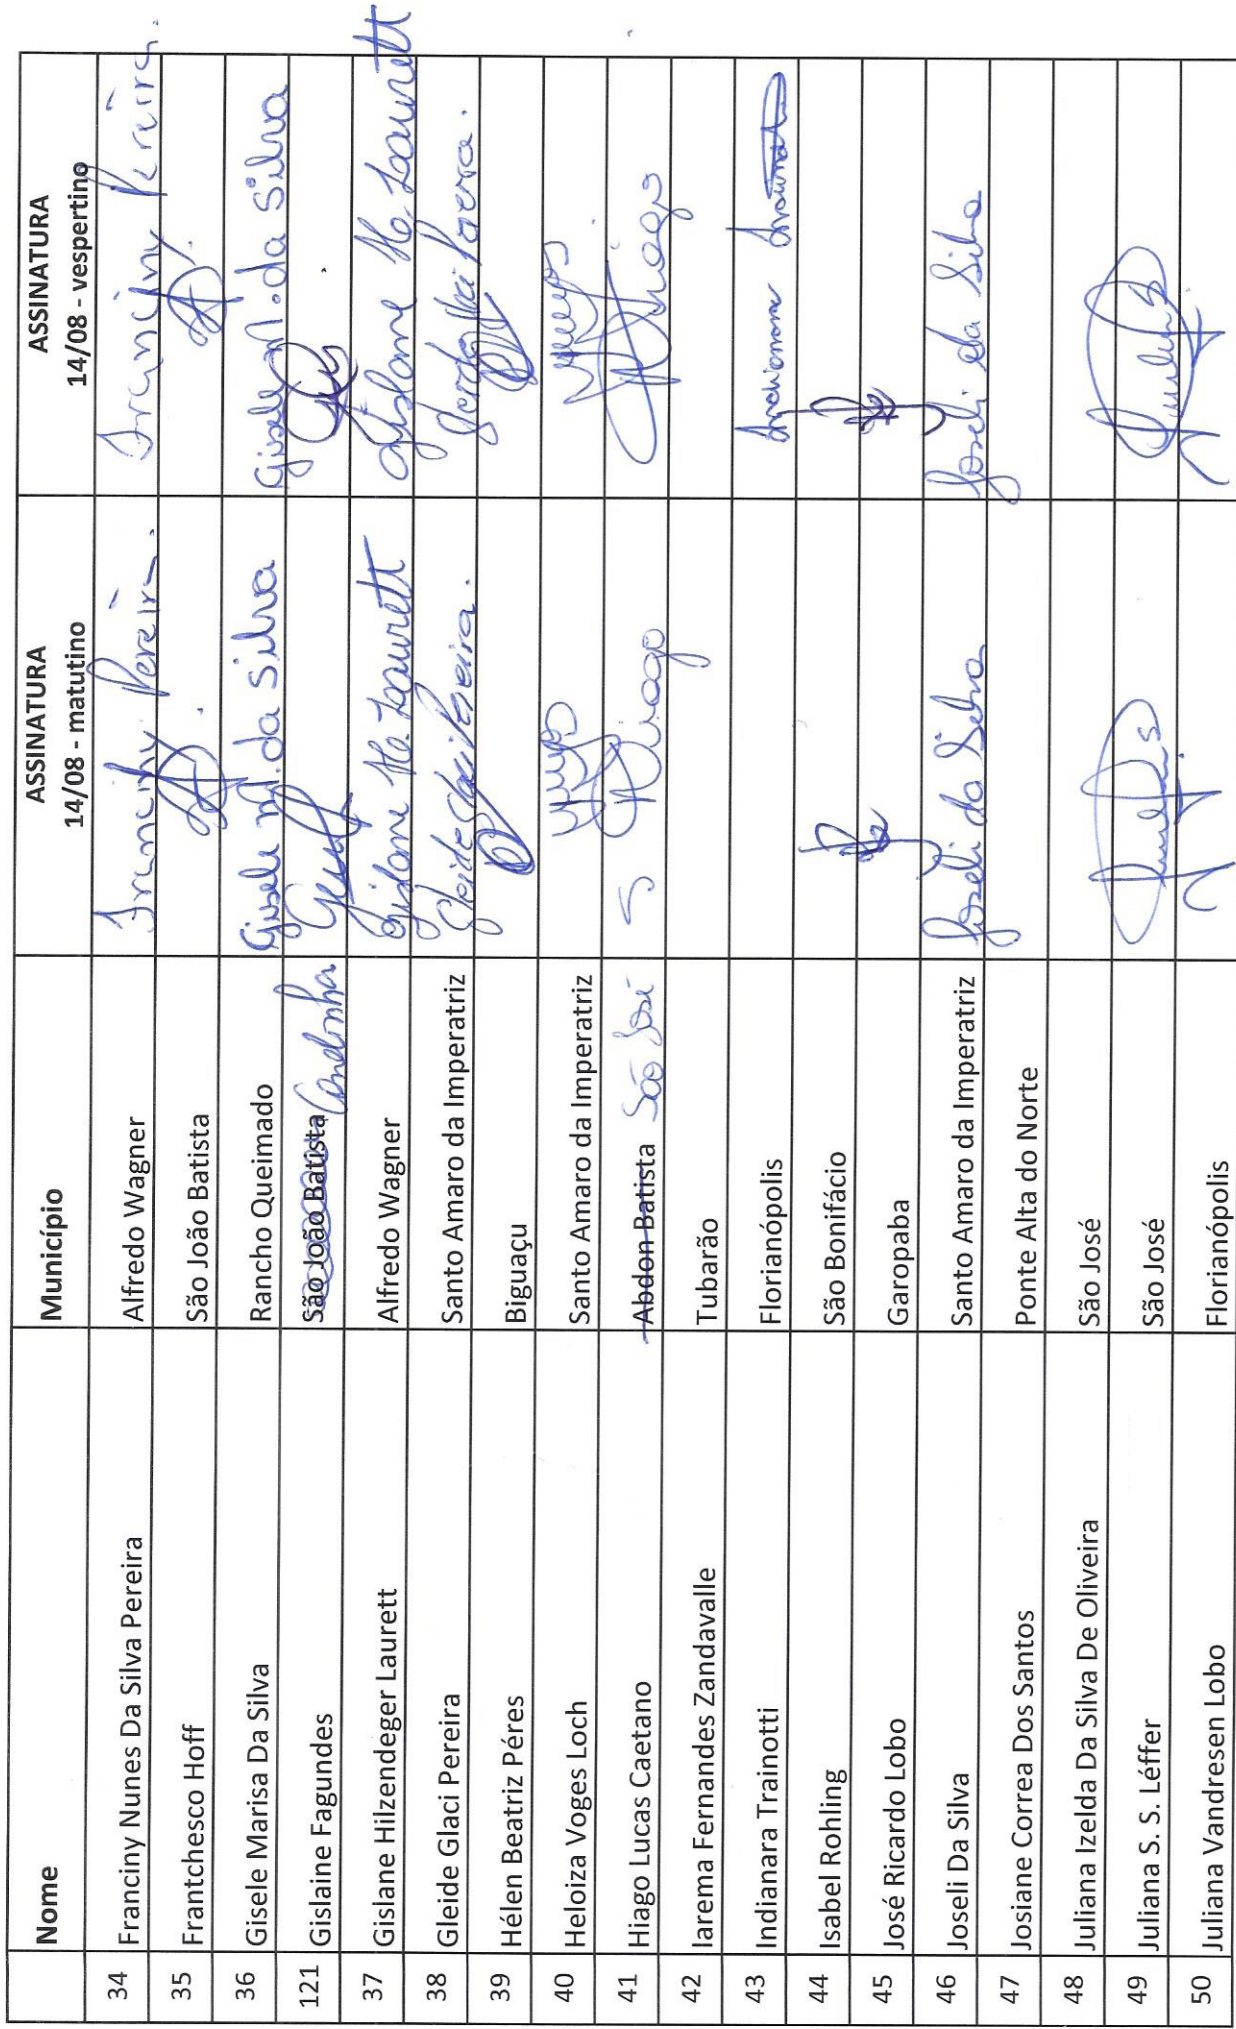 Nome Município ASSINATURA 14/08 - matutino ASSINATURA 14/08 - vespertino
34 Franciny Nunes Da Silva Pereira Alfredo Wagner Franciny Pereira. Franciny Pereira.
35 Frantchesco Hoff São João Batista
36 Gisele Marisa Da Silva Rancho Queimado Gisele M. da Silva Gisele M. da Silva
121 Gislaine Fagundes São João Batista
37 Gislane Hilzendeger Laurett Alfredo Wagner Gislane H. Laurett Gislane H. Laurett
38 Gleide Glaci Pereira Santo Amaro da Imperatriz Gleide Glaci Pereira.
39 Hélen Beatriz Péres Biguaçu
40 Heloiza Voges Loch Santo Amaro da Imperatriz
41 Hiago Lucas Caetano Abdon Batista São José Hiago Hiago
42 Iarema Fernandes Zandavalle Tubarão
43 Indianara Trainotti Florianópolis Indianara
44 Isabel Rohling São Bonifácio
45 José Ricardo Lobo Garopaba
46 Joseli Da Silva Santo Amaro da Imperatriz Joseli da Silva Joseli da Silva
47 Josiane Correa Dos Santos Ponte Alta do Norte
48 Juliana Izelda Da Silva De Oliveira São José
49 Juliana S. S. Léffer São José
50 Juliana Vandresen Lobo Florianópolis